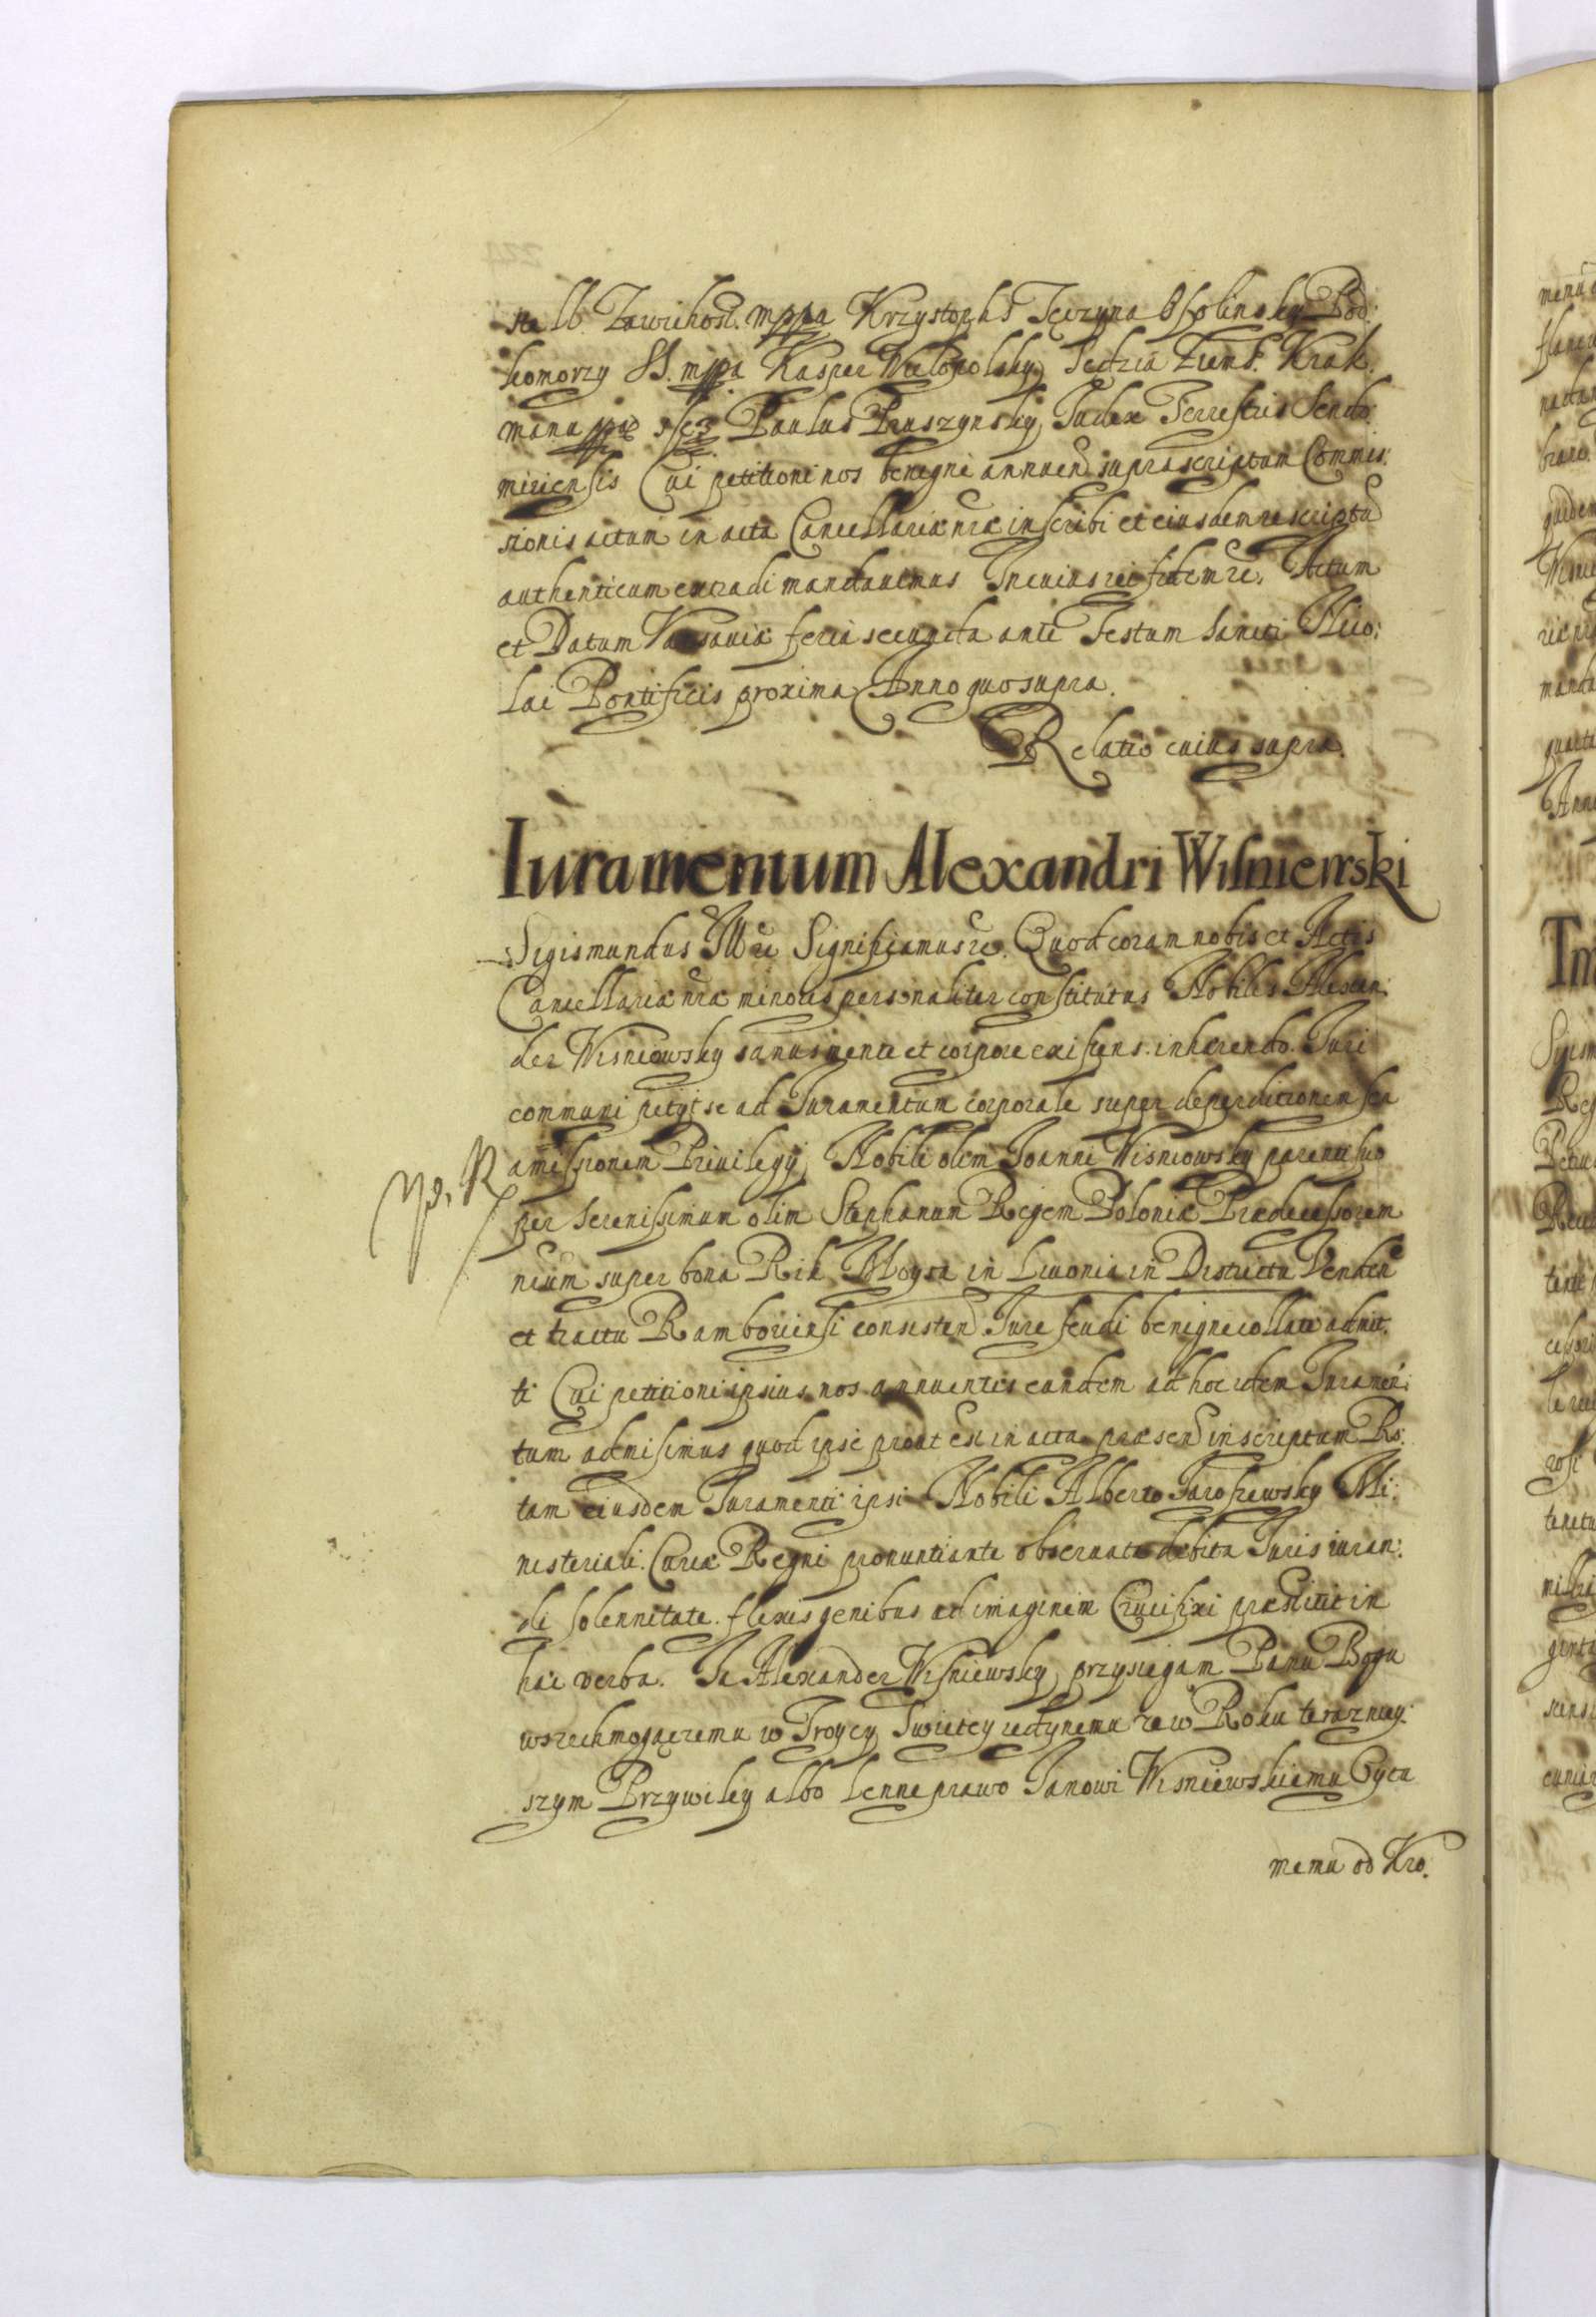 Zawichost. mppa Krzysztoph s Tęczyna Ossolinsky Pod:
komorzy SS. mppa Kasper Wielopolsky Sędzia Ziems. Krak.
manu ppa Paulus Pruszynsky Judex Terrestris Sendo:
miriensis Cui petitioni nos benigne annuen suprascriptum Commis:
sionis actum in acta Cancellariæ nræ inscribi et eiusdem rescriptu
authenticum extradi mandavimus In cuius rei fidem &c. Actum
et Datum Varsaviæ feria secunda ante Festum Sancti Nico:
lai Pontificis proxima Anno quo supra.
Relatio cuius supra.
Iuramentum Alexandri Wisniewski
Sigismundus III &c Significamus &c. Quod coram nobis et Actis
Cancellariæ nræ minoris personaliter constitutus Nobilis Alexan:
der Wisniowsky sanus mente et corpore existens inhærendo Juri
communi petyt se ad Juramentum corporale super deperditionem seu
amissionem Privilegij Nobili olim Joanni Wisniowsky parenti suo
per Serenissimum olim Stephanum Regem Poloniæ Prædecessorem
nrum super bona Rik Moysa in Livonia in Districtu Venden
et tractu Rambouiensi consisten Jure feudi benigne collati admit:
ti Cui petitioni ipsius nos annuentes eundem ad hoc idem Juramen:
tum admisimus quod ipse prout est in acta præsen inscriptum Ro:
tam eiusdem Juramenti ipsi Nobili Alberto Jaroszewsky Mi:
nisteriali Curiæ Regni pronuntiante observata debita Juris iuran:
di solennitate flexis genibus ad imaginem Crucifixi præstitit in
hæc verba. Ja Alexander Wisniewsky przysięgam Panu Bogu
wszechmogącemu w Troycy Swietey iedynemu że w Roku teraznieÿ:
szym Przywiley albo lenne prawo Janowi Wisniewskiemu Oycu
memu od Kro: